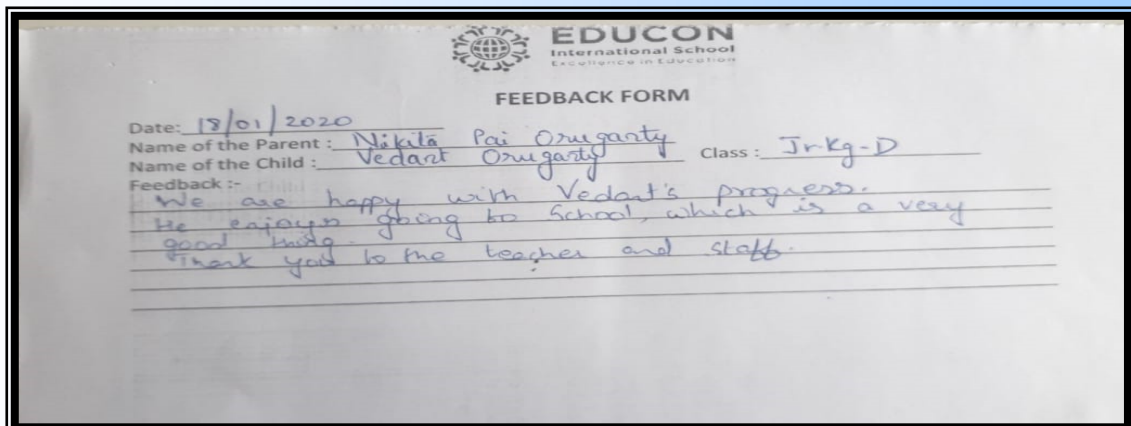 EDUCON
International School
Excellence in Education
FEEDBACK FORM
Date: 18/01/2020
Name of the Parent : Nikita Pai Oruganty
Name of the Child : Vedant Oruganty Class : Jr.Kg-D
Feedback :-
We are happy with Vedant's progress.
He enjoys going to School, which is a very
good thing.
Thank you to the teacher and staff.